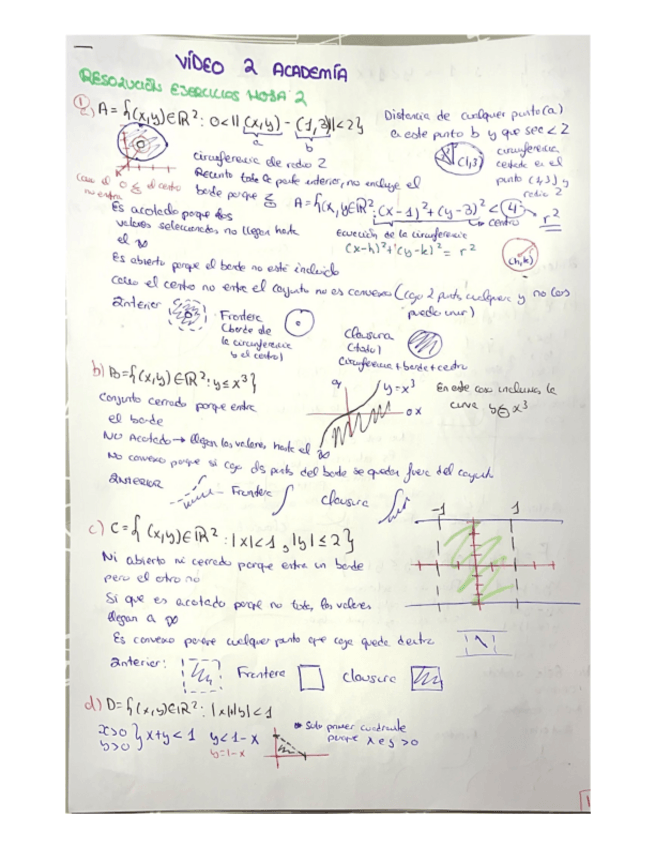 VÍDEO 2 ACADEMÍA
RESOLUCIÓN EJERCICIOS HOJA 2
1
a) A = {(x,y)∈ℝ² : 0<||(x,y) - (1,3)||<2}
a b
Distancia de cualquier punto (a)
a este punto b y que sea < 2
circunferencia de radio 2
Recinto toda la parte interior, no incluye el
borde porque ≤
(1,3)
circunferencia
centrada en el
punto (1,3) y
radio 2
A = {(x,y∈ℝ² : (x-1)² + (y-3)² < 4
centro r²
Es acotado porque los
valores seleccionados no llegan hasta
el ∞
Ecuación de la circunferencia
(x-h)² + (y-k)² = r²
(h,k)
Es abierto porque el borde no está incluido
Como el centro no entra el conjunto no es convexo (cojo 2 puntos cualquiera y no los
puedo unir)
Interior
Frontera
(borde de
la circunferencia
y el centro)
Clausura
(todo)
Circunferencia + borde + centro
b) B = {(x,y)∈ℝ² : y ≤ x³}
y
y = x³
ox
En este caso incluimos la
curva y ≤ x³
Conjunto cerrado porque entra
el borde
No Acotado → llegan los valores hasta el ∞
No convexo porque si cojo dos puntos del borde se quedan fuera del conjunto
INTERIOR
Frontera
Clausura
c) C = { (x,y)∈ℝ² : |x|<1 , |y| ≤ 2}
-1 1
Ni abierto ni cerrado porque entra un borde
pero el otro no
Si que es acotado porque no todos los valores
llegan a ∞
Es convexo porque cualquier punto que coja queda dentro
Interior:
Frontera
Clausura
d) D = {(x,y)∈ℝ² : |x|+|y|<1
x>0
y>0 } x+y<1 y<1-x
y=1-x
Solo primer cuadrante
porque x e y >0
1